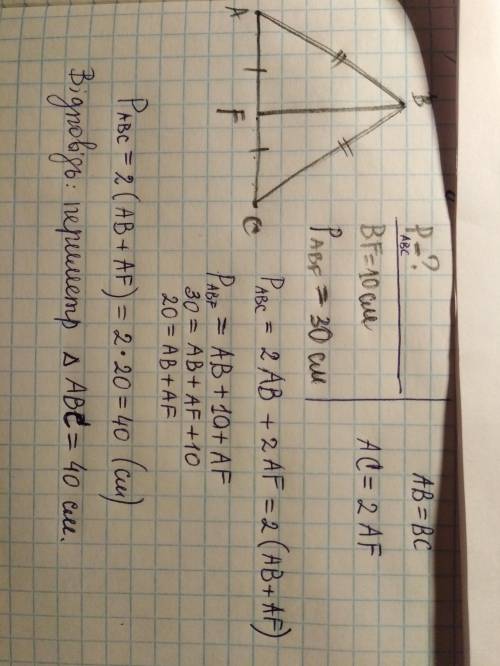 B
A
F
C
P ABC = ?
BF = 10 см
P ABF = 30 см
AB = BC
AC = 2 AF
P ABC = 2 AB + 2 AF = 2 (AB + AF)
P ABF = AB + 10 + AF
30 = AB + AF + 10
20 = AB + AF
P ABC = 2 (AB + AF) = 2 · 20 = 40 (см)
Відповідь: периметр Δ ABC = 40 см.